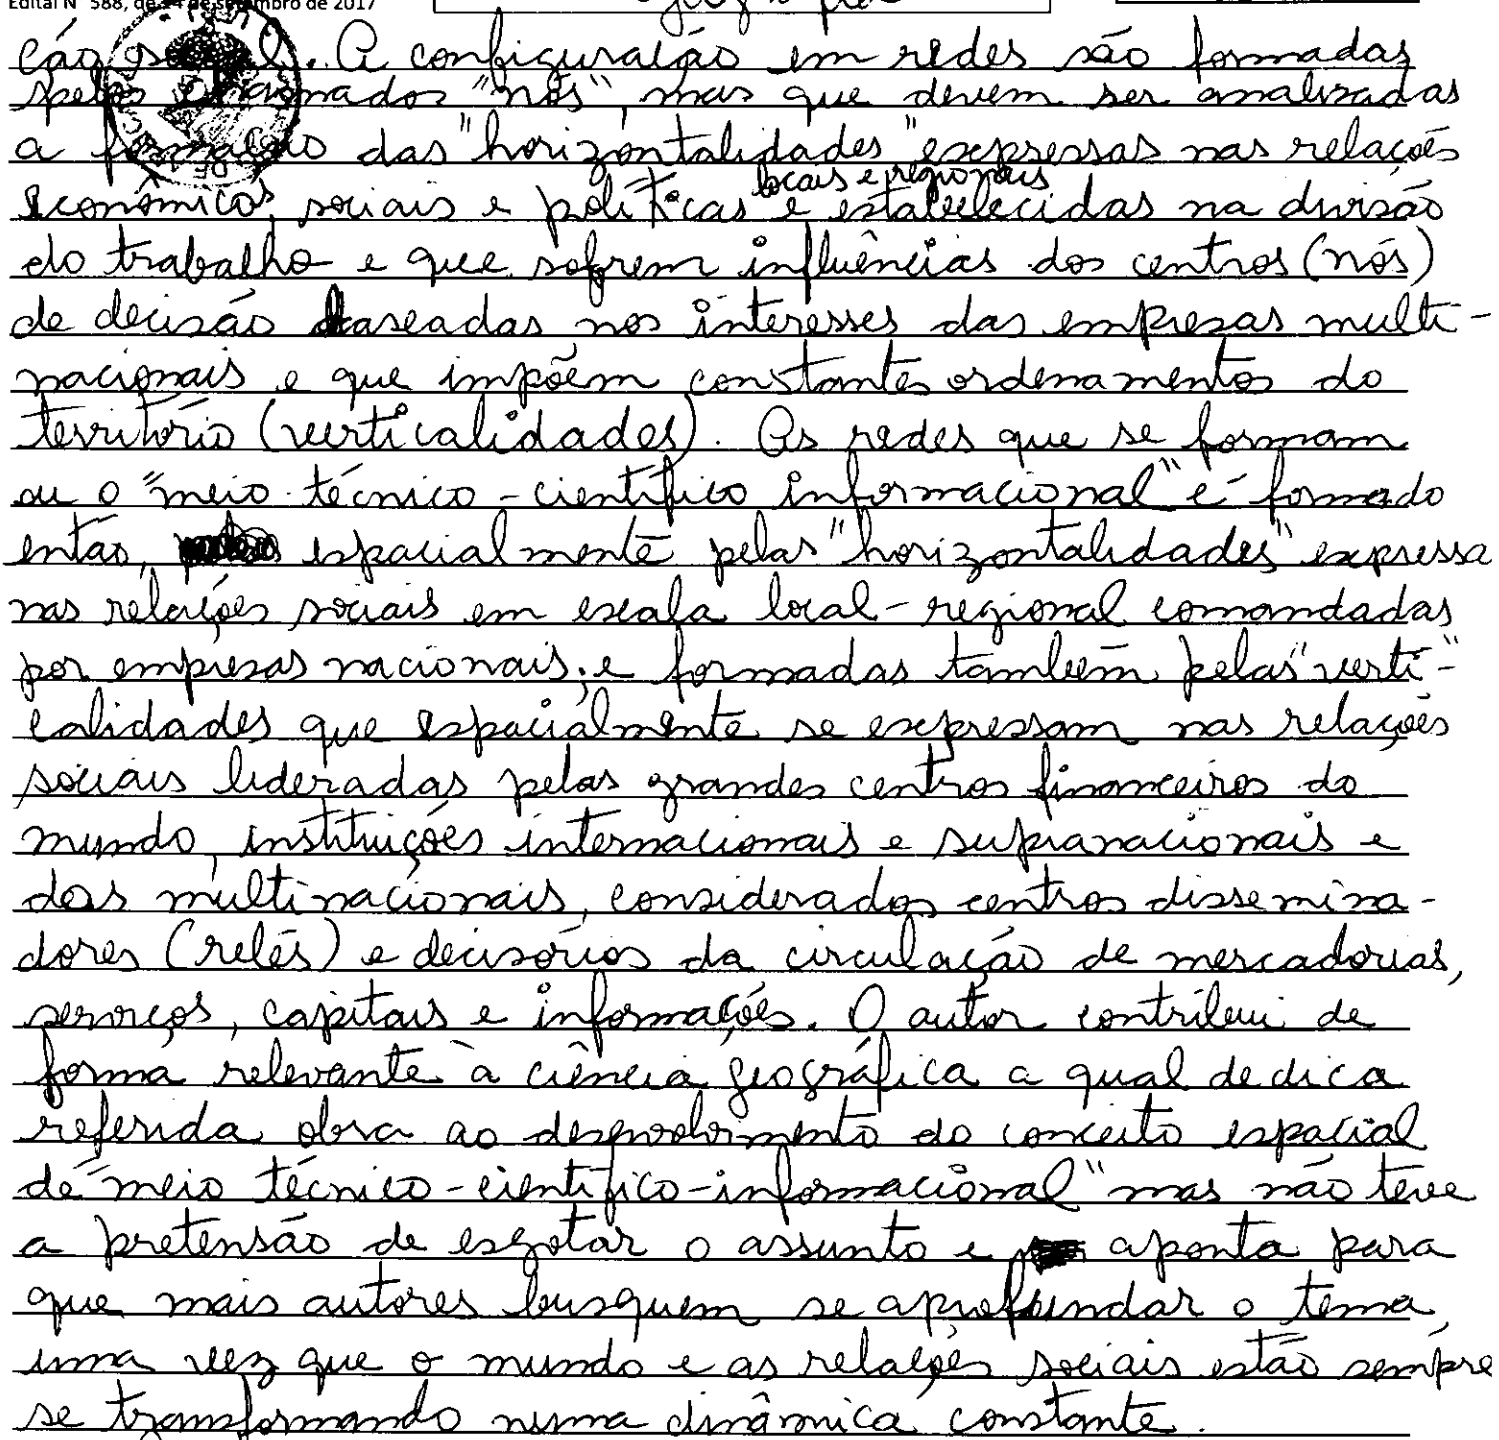 Edital N° 588, de 14 de setembro de 2017
Geografia
ção A configuração em redes são formadas
pelos chamados "nós", mas que devem ser analisadas
a formação das "horizontalidades" expressas nas relações
locais e regionais
econômicas, sociais e políticas e estabelecidas na divisão
do trabalho e que sofrem influências dos centros (nós)
de decisão baseadas nos interesses das empresas multi-
nacionais e que impõem constantes ordenamentos do
território (verticalidades). As redes que se formam
ou o "meio técnico-científico informacional" é formado
então, espacialmente pelas "horizontalidades" expressa
nas relações sociais em escala local-regional comandadas
por empresas nacionais; e formadas também pelas "verti"-
calidades que espacialmente se expressam nas relações
sociais lideradas pelas grandes centros financeiros do
mundo, instituições internacionais e supranacionais e
das multinacionais, considerados centros dissemina-
dores (relés) e decisórios da circulação de mercadorias,
serviços, capitais e informações. O autor contribui de
forma relevante à ciência geográfica a qual dedica
referida obra ao desenvolvimento do conceito espacial
de "meio técnico-científico-informacional" mas não teve
a pretensão de esgotar o assunto e aponta para
que mais autores busquem se aprofundar o tema,
uma vez que o mundo e as relações sociais estão sempre
se transformando numa dinâmica constante.